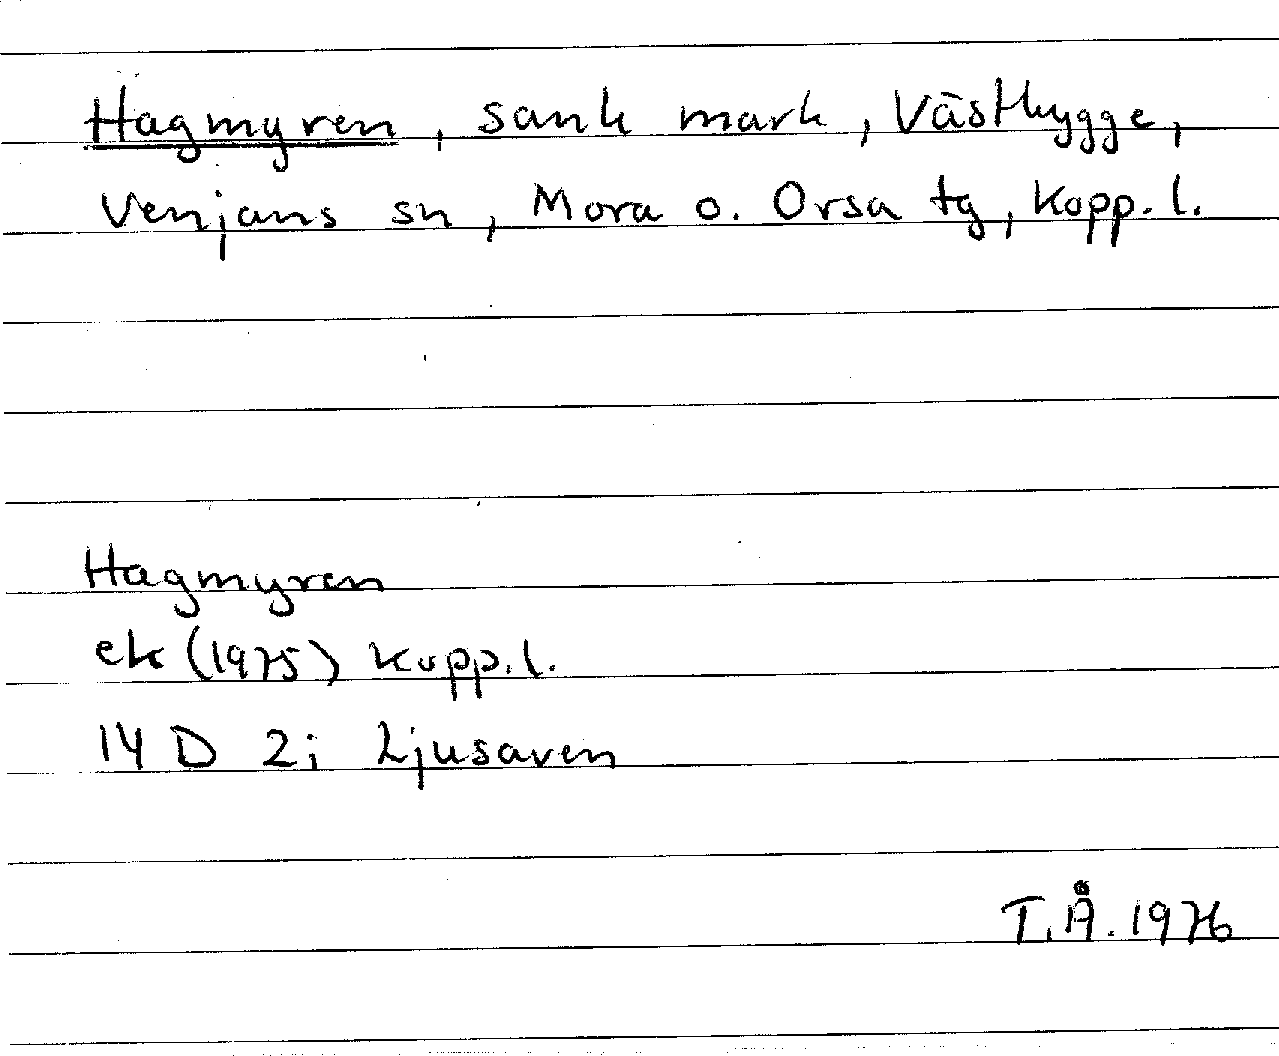 Hagmyren, sank mark, Västbygge,
Venjans sn, Mora o. Orsa tg, Kopp. l.
Hagmyren
ek (1975) Kopp. l.
14 D 2i Ljusaven
T.Å. 1976